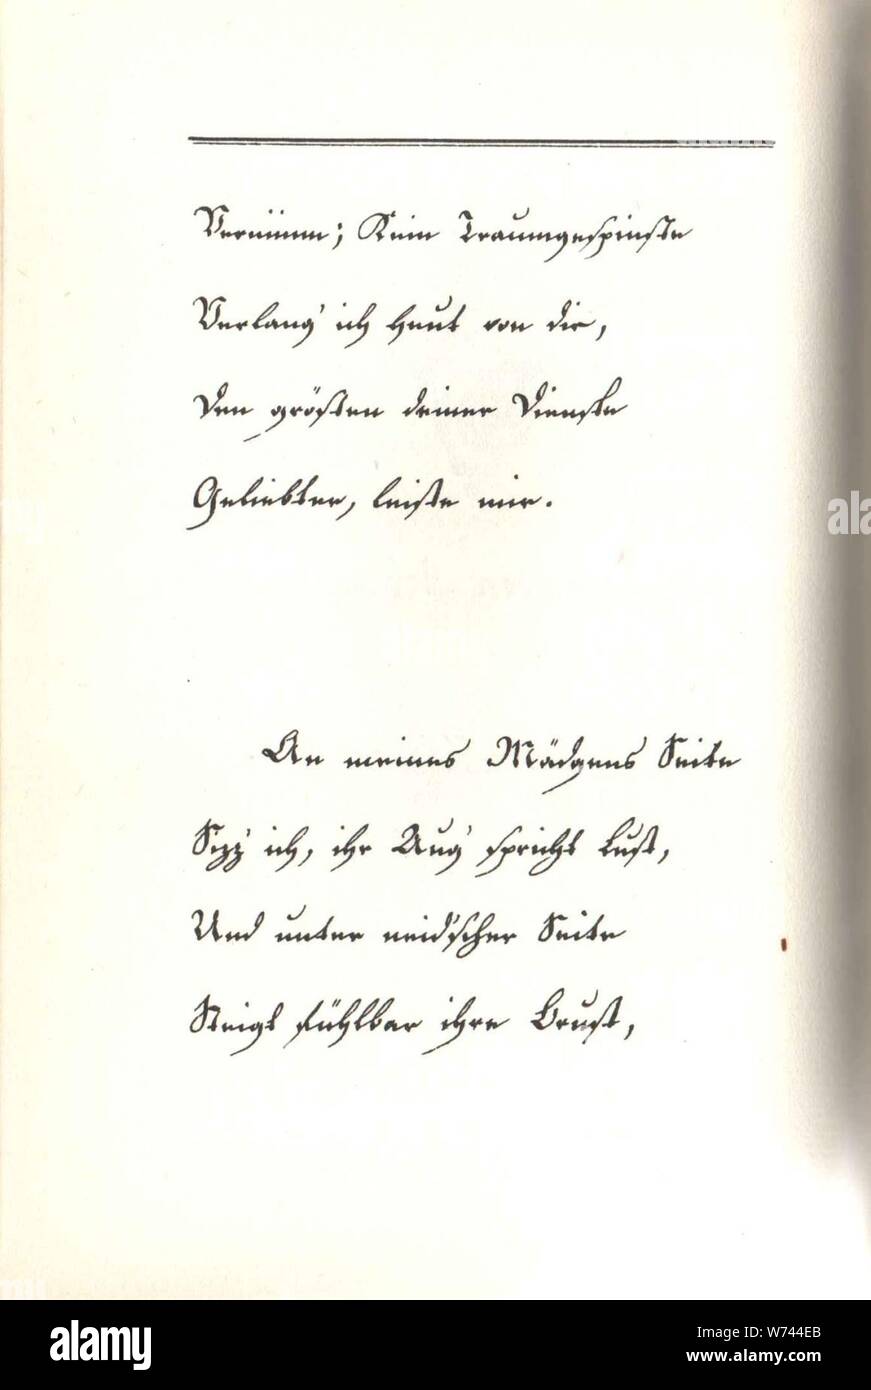 Vernimm; Kein Traumgespinste
Verlang' ich heut von dir,
Den größten deiner Dienste
Geliebter, leiste mir.
An meines Mädgens Seite
Sizz' ich, ihr Aug' spricht Lust,
Und unter neid'scher Seide
Steigt fühlbar ihre Brust,
a
alamy
Image ID: W744EB
www.alamy.com